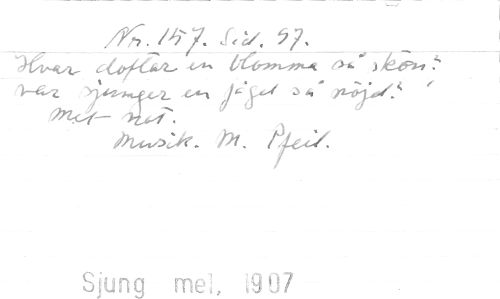 Nr. 157. Sid. 97.
Hvar doftar en blomma så skön?
var sjunger en fågel så nöjd?
Met not.
Musik. M. Pfeil.
Sjung mel, 1907